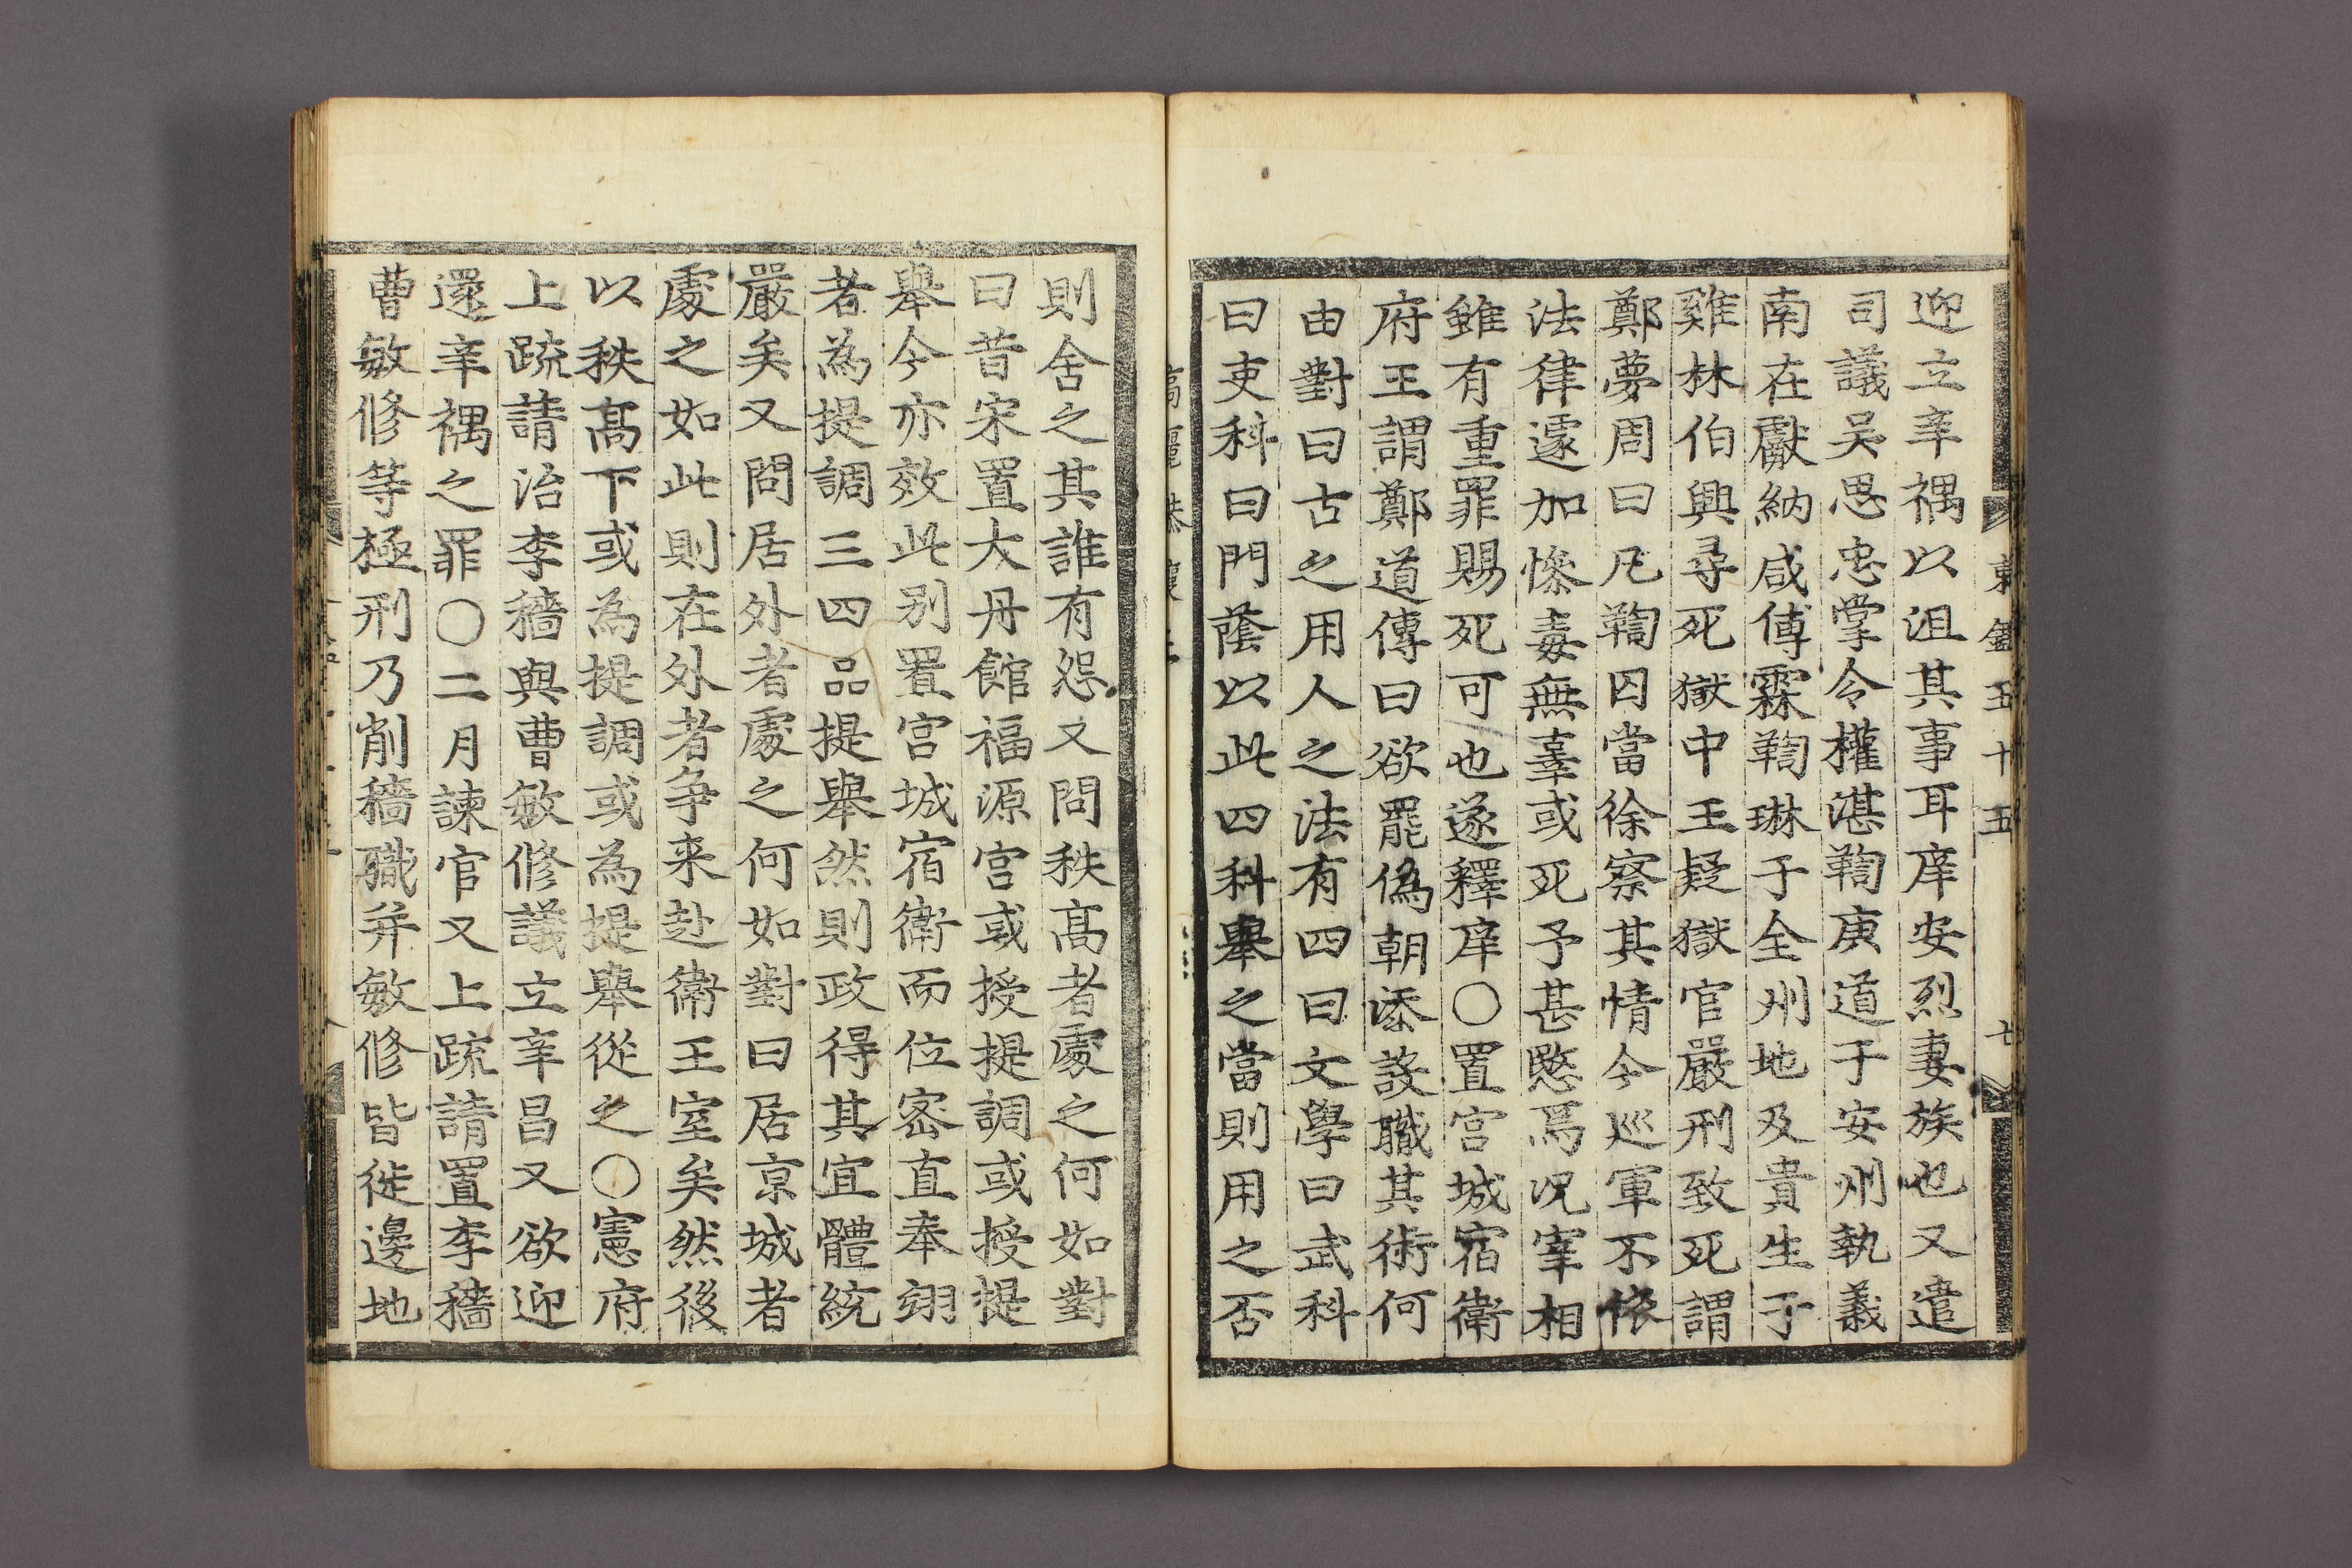 東鑑五十五 七
迎立辛禑以沮其事耳庠安烈妻族也又遣
司議吴思忠掌令權湛鞫庚道于安州執義
南在獻納咸傅霖鞫琳于全州地及貴生于
雞林伯興尋死獄中王疑獄官嚴刑致死謂
鄭夢周曰凡鞫囚當徐察其情今巡軍不依
法律遽加慘毒無辜或死予甚愍焉况宰相
雖有重罪賜死可也遂釋庠○置宫城宿衛
府王謂鄭道傳曰欲罷僞朝添設職其術何
由對曰古之用人之法有四曰文學曰武科
曰吏科曰門蔭以此四科舉之當則用之否
則舍之其誰有怨又問秩髙者處之何如對
曰昔宋置大丹館福源宫或授提調或授提
舉今亦效此别置宫城宿衛而位密直奉翊
者為提調三四品提舉然則政得其宜體統
嚴矣又問居外者處之何如對曰居京城者
處之如此則在外者争来赴衛王室矣然後
以秩髙下或為提調或為提舉從之○憲府
上䟽請治李穡與曹敏修議立辛昌又欲迎
還辛禑之罪○二月諫官又上䟽請置李穡
曹敏修等極刑乃削穡職并敏修皆徙邊地